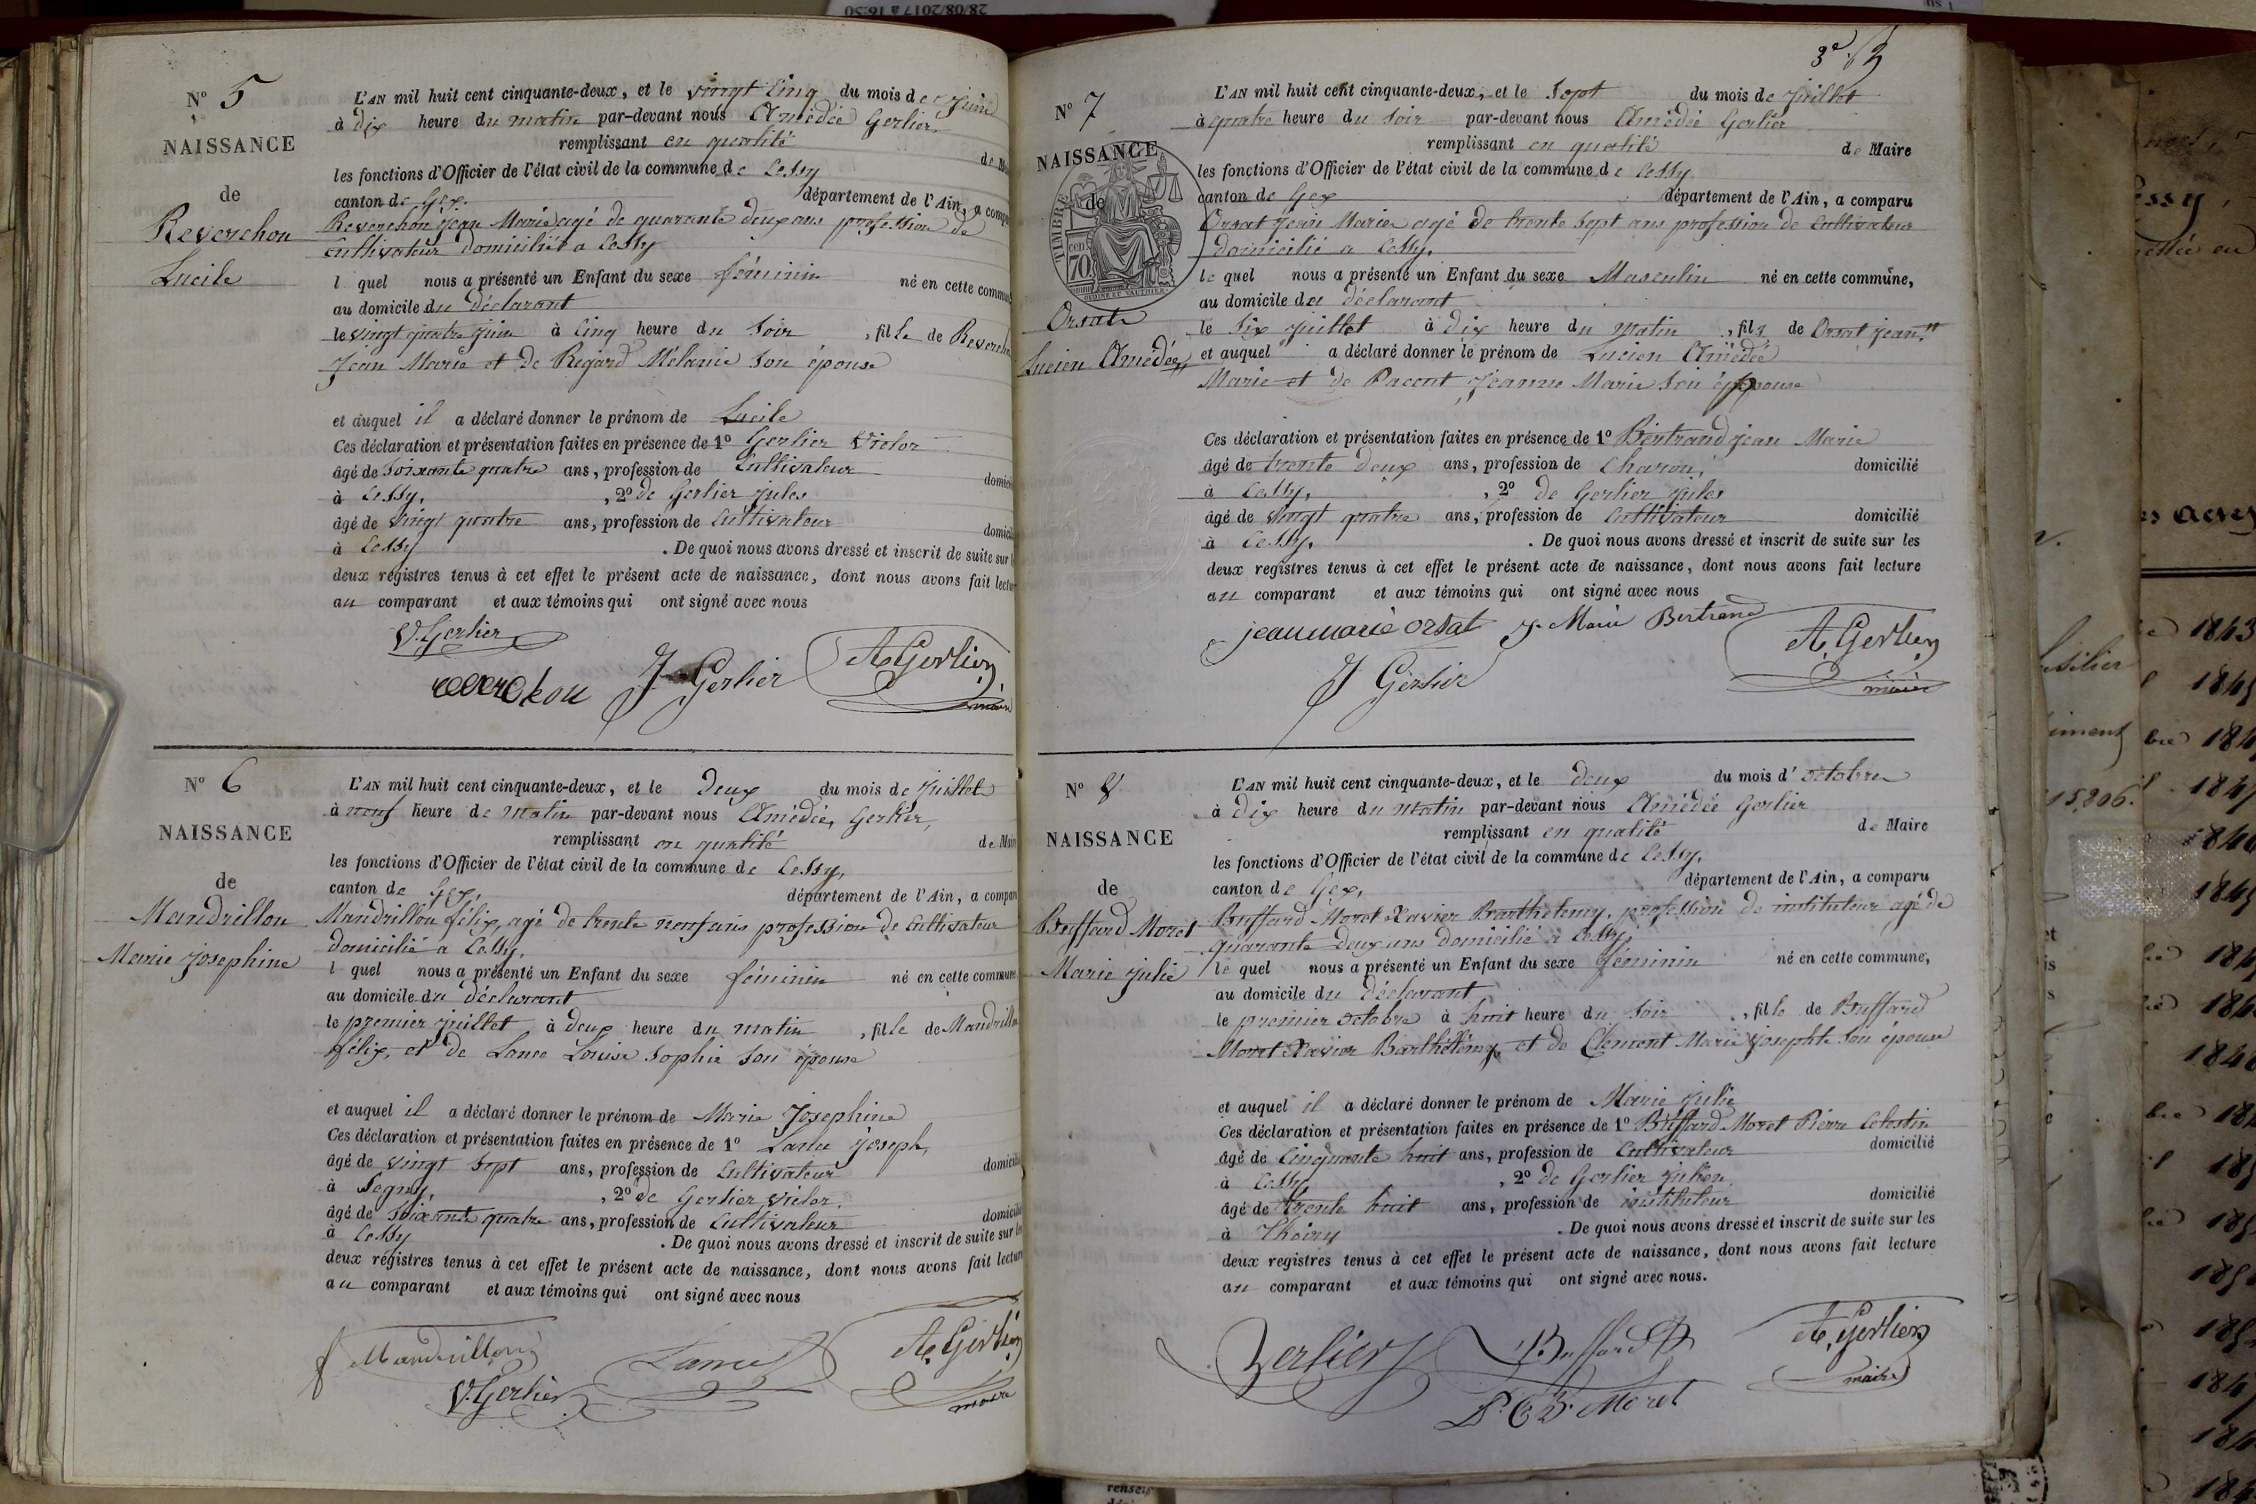 28/08/2017 à 16:50
N° 5
NAISSANCE
de
Reverchon
Lucile
L'AN mil huit cent cinquante-deux, et le vingt cinq du mois de juin
à dix heure du matin par-devant nous Amédée Gerlier
remplissant en qualité de
les fonctions d'Officier de l'état civil de la commune de Cessy
canton de Gex. département de l'Ain, a
Reverchon jean Marie agé de quarante deux ans profession de
cultivateur domicilié a Cessy
l quel nous a présenté un Enfant du sexe féminin né en cette
au domicile du déclarant
le vingt quatre juin à cinq heure du soir , fille de
Jean Marie et de Regard Mélanie son épouse
et auquel il a déclaré donner le prénom de Lucile
Ces déclaration et présentation faites en présence de 1° Gerlier Victor
âgé de soixante quatre ans, profession de Cultivateur
à Cessy. , 2° de Gerlier jules
âgé de vingt quatre ans, profession de Cultivateur
à Cessy . De quoi nous avons dressé et inscrit de suite sur
deux registres tenus à cet effet le présent acte de naissance, dont nous avons fait
au comparant et aux témoins qui ont signé avec nous
V. Gerlier
J Gerlier
A. Gerlier
maire
N° 6
NAISSANCE
de
Mandrillon
Marie josephine
L'AN mil huit cent cinquante-deux, et le deux du mois de juillet
à neuf heure de matin par-devant nous Amédée, Gerlier,
remplissant en qualité de
les fonctions d'Officier de l'état civil de la commune de Cessy,
canton de Gex, département de l'Ain, a
Mandrillon félix, agé de trente neuf ans profession de cultivateur
domicilié a Cessy,
l quel nous a présenté un Enfant du sexe féminin né en cette commune
au domicile du déclarant
le premier juillet à deux heure du matin , fille de
félix, et de Lance Louise Sophie son épouse
et auquel il a déclaré donner le prénom de Marie Josephine
Ces déclaration et présentation faites en présence de 1° Lance Joseph,
âgé de vingt sept ans, profession de cultivateur
à Segny, , 2° de Gerlier Victor.
âgé de soixante quatre ans, profession de cultivateur
à Cessy . De quoi nous avons dressé et inscrit de suite sur
deux registres tenus à cet effet le présent acte de naissance, dont nous avons fait
au comparant et aux témoins qui ont signé avec nous
Mandrillon
Lance
A. Gerlier
V. Gerlier
maire
N° 7
NAISSANCE
de
TIMBRE
70
Orsat
Lucien Amédée
L'AN mil huit cent cinquante-deux, et le sept du mois de juillet
à quatre heure du soir par-devant nous Amédée Gerlier
remplissant en qualité de Maire
les fonctions d'Officier de l'état civil de la commune de Cessy
canton de Gex département de l'Ain, a comparu
Orsat jean Marie agé de trente sept ans profession de cultivateur
domicilié a Cessy.
le quel nous a présenté un Enfant du sexe Masculin né en cette commune,
au domicile du déclarant
le six juillet à dix heure du matin , fils de Orsat jean
et auquel a déclaré donner le prénom de Lucien Amédée
Marie et de Pacent Jeanne Marie son épouse
Ces déclaration et présentation faites en présence de 1° Bertrand jean Marie
âgé de trente deux ans, profession de Charon, domicilié
à Cessy, , 2° de Gerlier jules
âgé de vingt quatre ans, profession de cultivateur domicilié
à Cessy. . De quoi nous avons dressé et inscrit de suite sur les
deux registres tenus à cet effet le présent acte de naissance, dont nous avons fait lecture
au comparant et aux témoins qui ont signé avec nous
jean marie orsat J. Marie Bertrand
A. Gerlier
J Gerlier
maire
N° 8
NAISSANCE
de
Buffard Moret
Marie julie
L'AN mil huit cent cinquante-deux, et le deux du mois d' octobre
à dix heure du matin par-devant nous Amédée Gerlier
remplissant en qualité de Maire
les fonctions d'Officier de l'état civil de la commune de Cessy,
canton de Gex, département de l'Ain, a comparu
Buffard Moret Xavier Barthelemy, profession de instituteur agé de
quarante deux ans domicilié a Cessy,
le quel nous a présenté un Enfant du sexe féminin né en cette commune,
au domicile du déclarant
le premier octobre à huit heure du soir , fille de Buffard
Moret Xavier Barthélémy, et de Clement Marie josephte son épouse
et auquel il a déclaré donner le prénom de Marie julie
Ces déclaration et présentation faites en présence de 1° Buffard Moret Pierre Celestin
âgé de Cinquante huit ans, profession de Cultivateur domicilié
à Cessy , 2° de Gerlier julien
âgé de trente huit ans, profession de instituteur domicilié
à Thoiry . De quoi nous avons dressé et inscrit de suite sur les
deux registres tenus à cet effet le présent acte de naissance, dont nous avons fait lecture
au comparant et aux témoins qui ont signé avec nous.
Gerlier
Buffard
A. Gerlier
maire
P. C. B. Moret
1843
1847